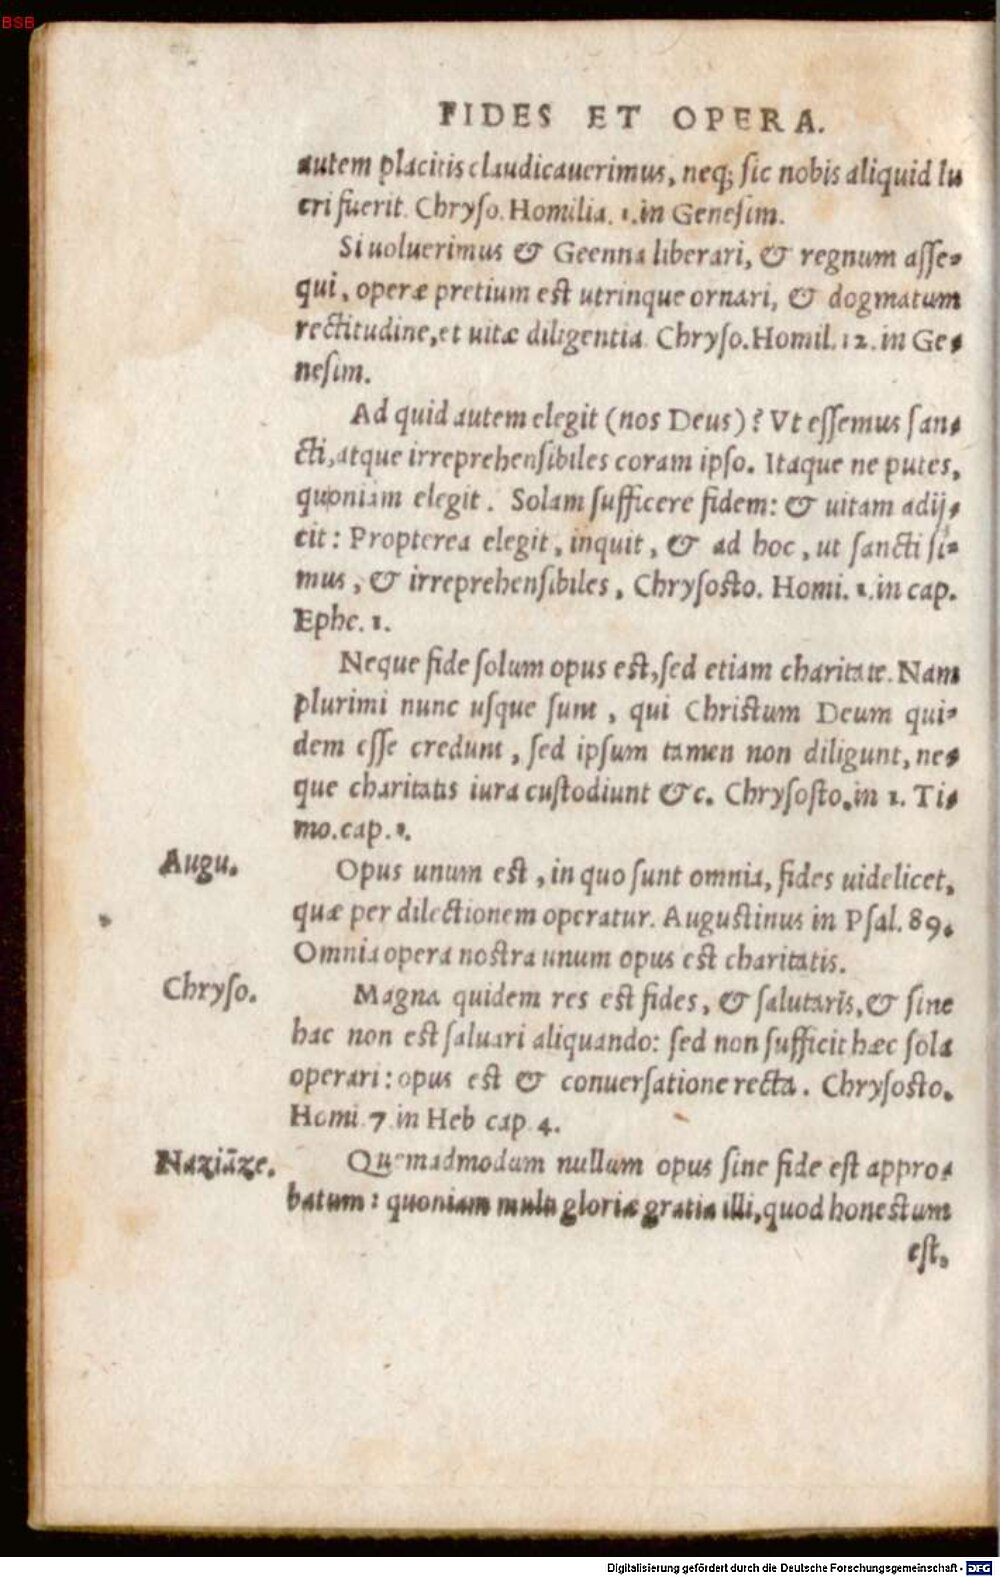 BSB
FIDES ET OPERA.
autem placitis claudicauerimus, neq; sic nobis aliquid lu
cri fuerit. Chryso. Homilia. 1. in Genesim.
Si uoluerimus & Geenna liberari, & regnum asse-
qui, operæ pretium est utrinque ornari, & dogmatum
rectitudine, et uitæ diligentia. Chryso. Homil. 12. in Ge-
nesim.
Ad quid autem elegit (nos Deus)? Vt essemus san-
cti, atque irreprehensibiles coram ipso. Itaque ne putes,
quoniam elegit. Solam sufficere fidem: & uitam adij-
cit: Propterea elegit, inquit, & ad hoc, ut sancti si-
mus, & irreprehensibiles, Chrysosto. Homi. 1. in cap.
Ephe. 1.
Neque fide solum opus est, sed etiam charitate. Nam
plurimi nunc usque sunt, qui Christum Deum qui-
dem esse credunt, sed ipsum tamen non diligunt, ne-
que charitatis iura custodiunt &c. Chrysosto. in 1. Ti-
mo. cap. 1.
Augu.
Opus unum est, in quo sunt omnia, fides uidelicet,
quæ per dilectionem operatur. Augustinus in Psal. 89.
Omnia opera nostra unum opus est charitatis.
Chryso.
Magna quidem res est fides, & salutaris, & sine
hac non est saluari aliquando: sed non sufficit hæc sola
operari: opus est & conuersatione recta. Chrysosto.
Homi. 7. in Heb cap. 4.
Naziāze.
Quemadmodum nullum opus sine fide est appro-
batum: quoniam multi gloriæ gratia illi, quod honestum
est,
Digitalisierung gefördert durch die Deutsche Forschungsgemeinschaft - DFG